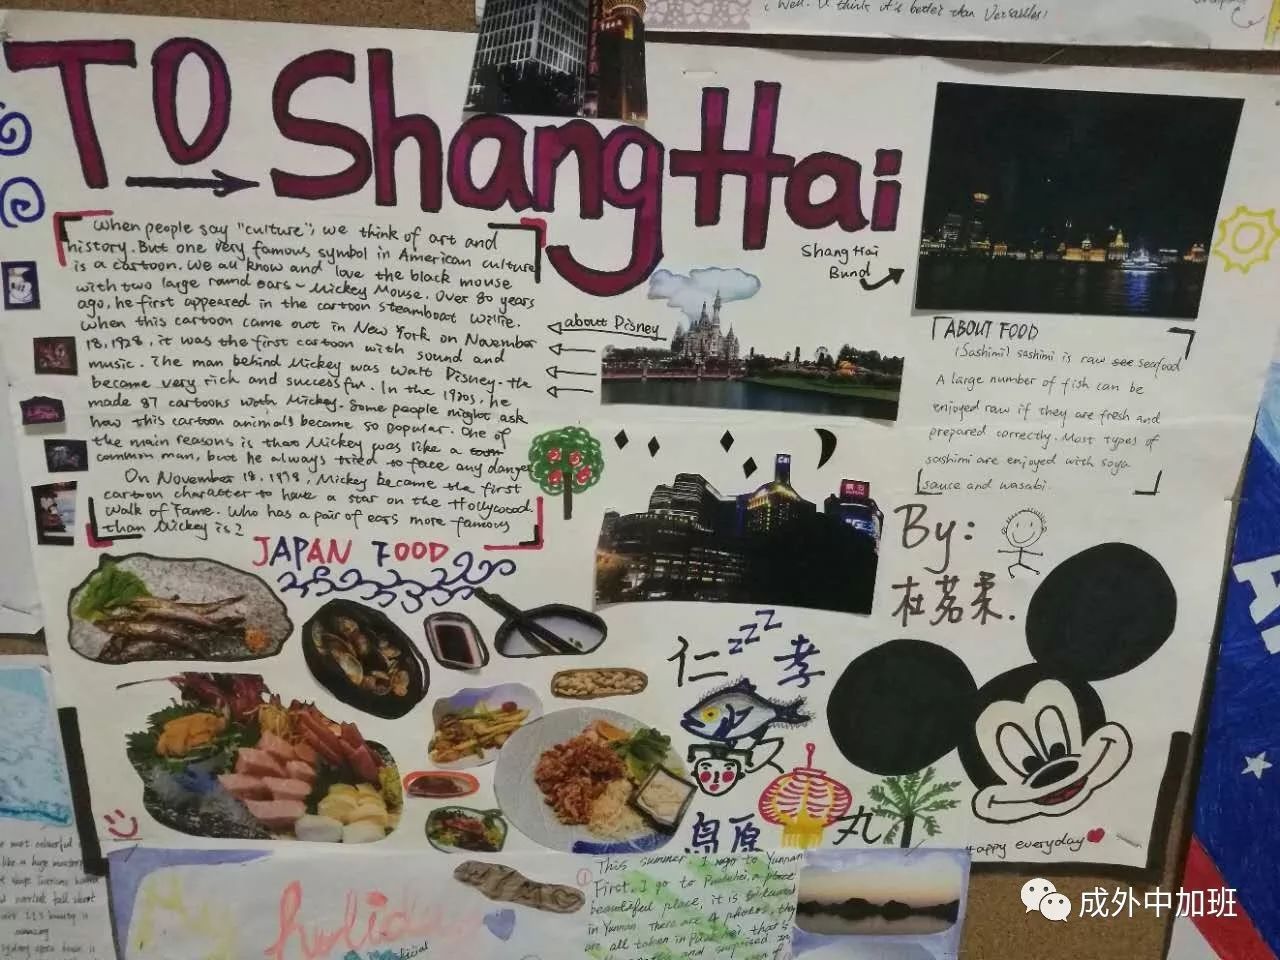 Well. I think it's better than Versailles!
TO ShangHai
When people say "culture", we think of art and
history. But one very famous symbol in American culture
is a cartoon. We all know and love the black mouse
with two large round ears ~ Mickey Mouse. Over 80 years
ago, he first appeared in the cartoon Steamboat Willie.
When this cartoon came out in New York on November
18, 1928, it was the first cartoon with sound and
music. The man behind Mickey was Walt Disney. He
became very rich and successful. In the 1930s, he
made 87 cartoons with Mickey. Some people might ask
how this cartoon animals became so popular. One of
the main reasons is that Mickey was like a
common man, but he always tried to face any danger
On November 18, 1978, Mickey became the first
cartoon character to have a star on the Hollywood
Walk of Fame. Who has a pair of ears more famous
than Mickey is?
about Disney
ShangHai
Bund
ABOUT FOOD
(Sashimi) sashimi is raw seafood
A large number of fish can be
enjoyed raw if they are fresh and
prepared correctly. Most types of
sashimi are enjoyed with soya
sauce and wasabi.
By:
杜茗柔.
JAPAN FOOD
zzz
仁 孝
島原 丸
Happy everyday
holiday
This summer. I go to Yunnan
First, I go to
beautiful place, it is
in Yunnan. There are 4 photos, they
are all taken in that's
and surprised
成外中加班